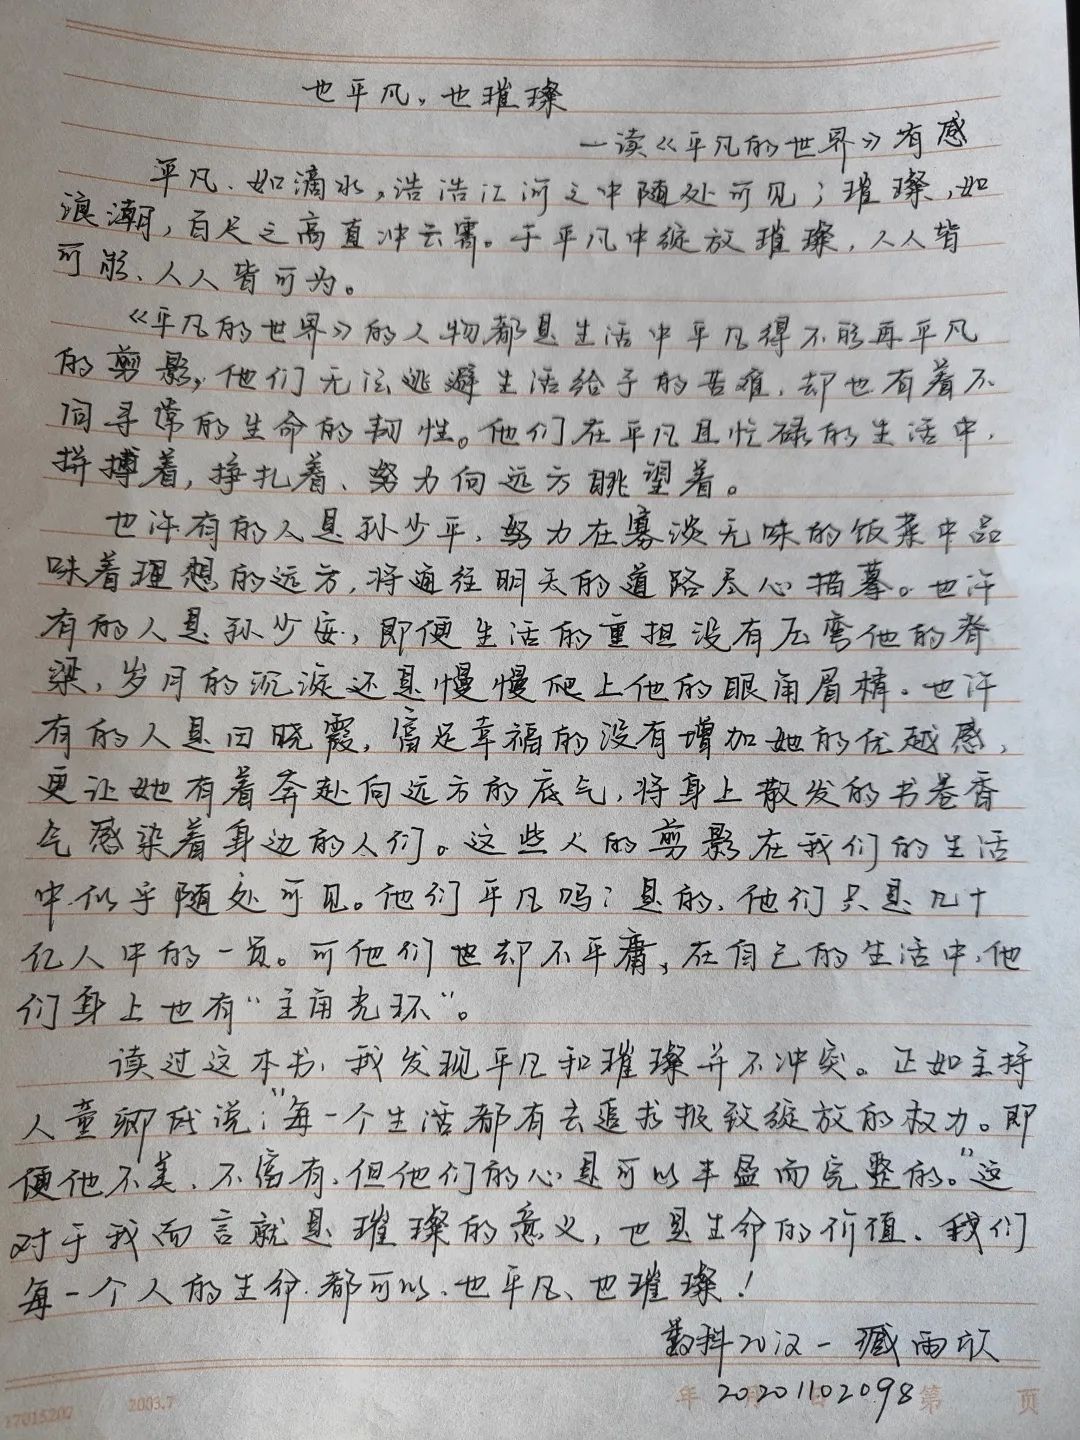 也平凡，也璀璨
—读《平凡的世界》有感
平凡、如滴水，浩浩江河之中随处可见；璀璨，如
浪潮，百尺之高直冲云霄。于平凡中绽放璀璨，人人皆
可能、人人皆可为。
《平凡的世界》的人物都是生活中平凡得不能再平凡
的剪影，他们无法逃避生活给予的苦难，却也有着不
同寻常的生命的韧性。他们在平凡且忙碌的生活中，
拼搏着，挣扎着、努力向远方眺望着。
也许有的人是孙少平，努力在寡淡无味的饭菜中品
味着理想的远方，将通往明天的道路尽心描摹。也许
有的人是孙少安，即便生活的重担没有压弯他的脊
梁，岁月的沉淀还是慢慢爬上他的眼角眉梢。也许
有的人是田晓霞，富足幸福的没有增加她的优越感，
更让她有着奔赴向远方的底气，将身上散发的书卷香
气感染着身边的人们。这些人的剪影在我们的生活
中似乎随处可见。他们平凡吗？是的，他们只是几十
亿人中的一员。可他们也却不平庸，在自己的生活中，他
们身上也有“主角光环”。
读过这本书，我发现平凡和璀璨并不冲突。正如主持
人董卿所说：“每一个生活都有去追求极致绽放的权力。即
便他不美、不富有，但他们的心是可以丰盈而完整的。”这
对于我而言就是璀璨的意义，也是生命的价值、我们
每一个人的生命都可以、也平凡、也璀璨！
数科20汉一 臧雨欣
20201102098
17015202
2003.7
年 月 日 第 页